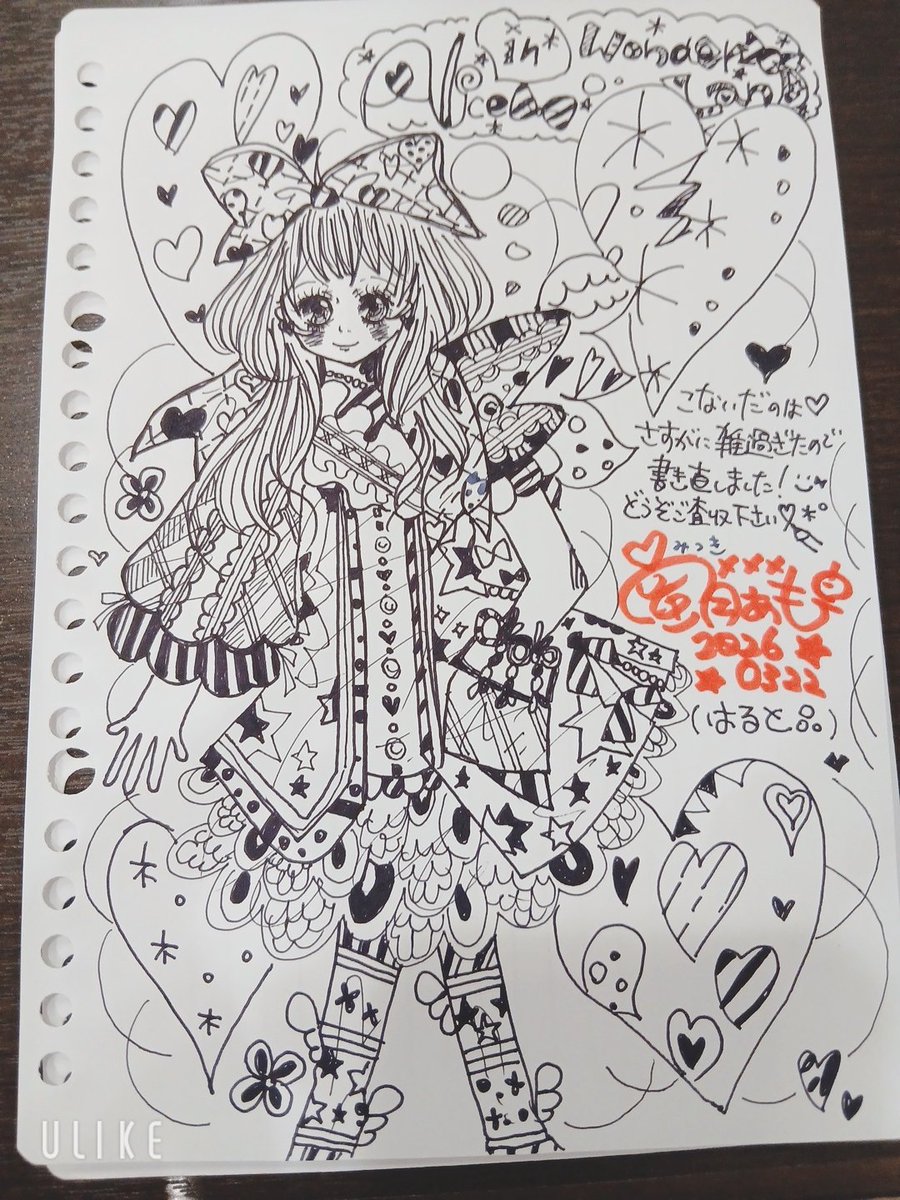 Alice in Wonder
Land
こないだのは♡
さすがに雑過ぎたので
書き直しました!
どうぞご査収下さい♡
みつき
月あも
2026
0322
(はると品)
ULIKE